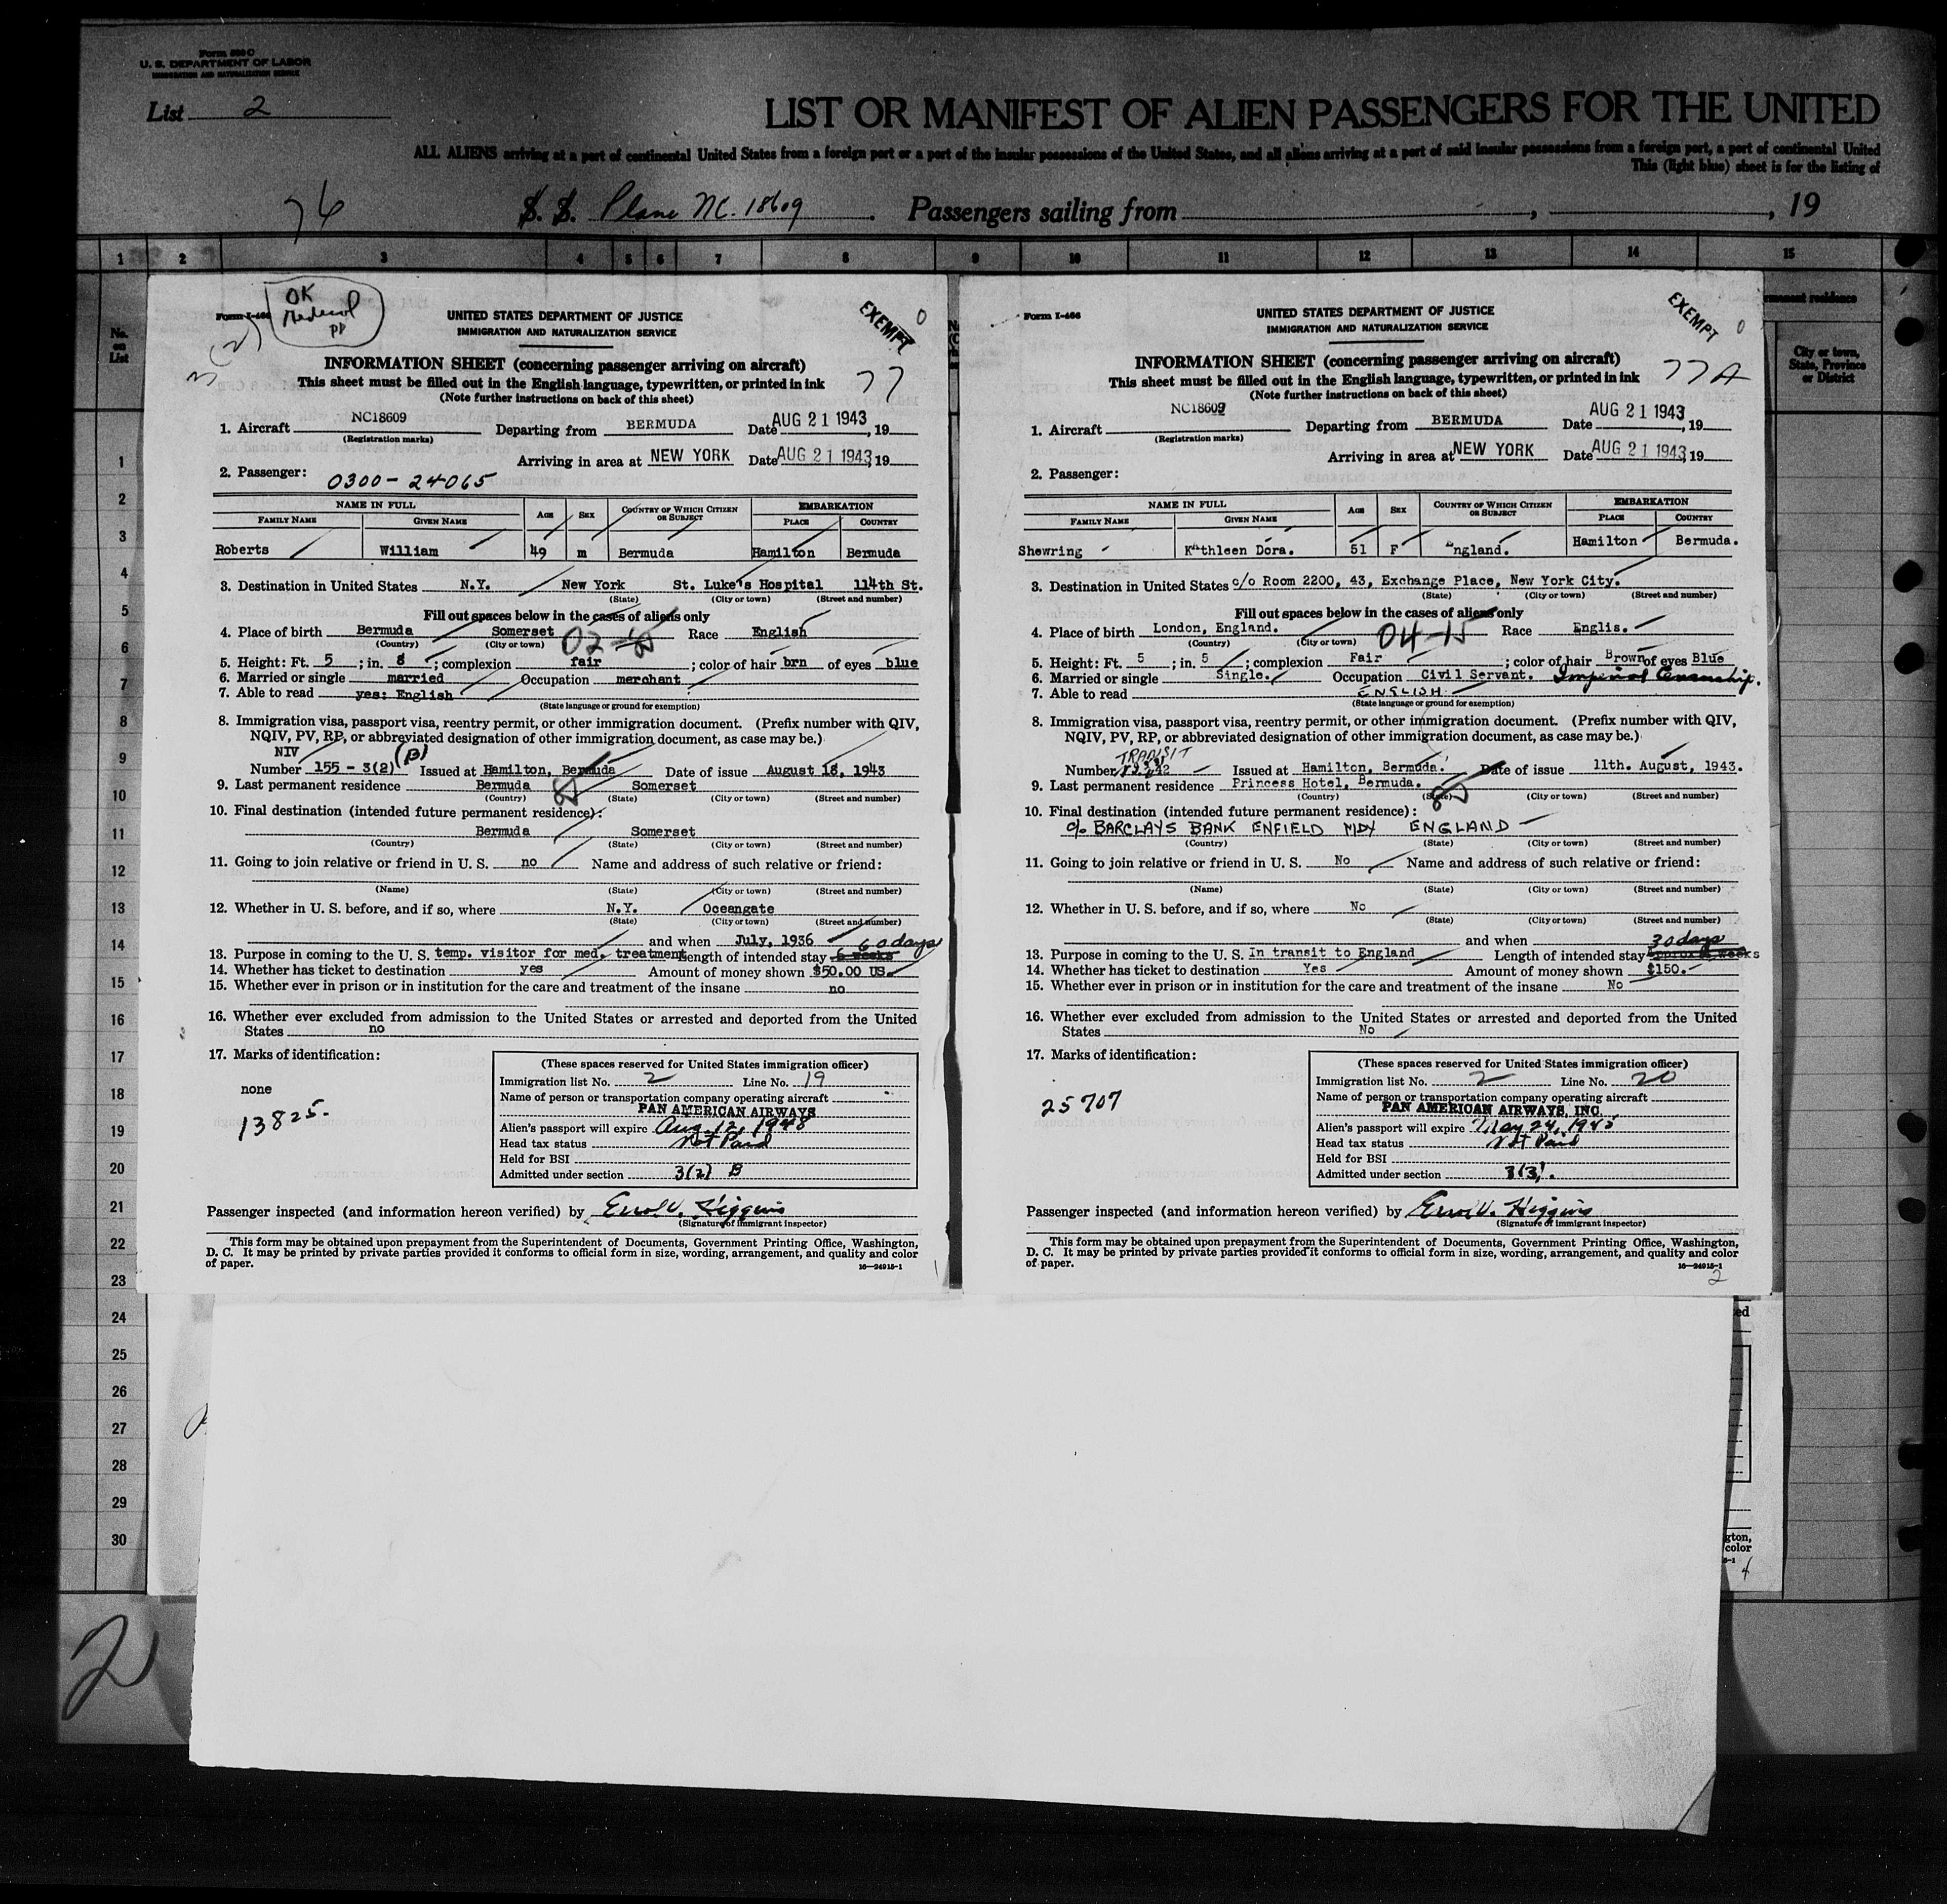 Form 500 C
U. S. DEPARTMENT OF LABOR
IMMIGRATION AND NATURALIZATION SERVICE
List 2
LIST OR MANIFEST OF ALIEN PASSENGERS FOR THE UNITED
ALL ALIENS arriving at a port of continental United States from a foreign port or a port of the insular possessions of the United States, and all aliens arriving at a port of said insular possessions from a foreign port, a port of continental United
This (light blue) sheet is for the listing of
76 S. S. Plane NC. 18609. Passengers sailing from , , 19
1 2 3 4 5 6 7 8 9 10 11 12 13 14 15
No. on List
1
2
3
4
5
6
7
8
9
10
11
12
13
14
15
16
17
18
19
20
21
22
23
24
25
26
27
28
29
30
2
OK
Medical
PP
Form I-466
3(2)
EXEMPT 0
UNITED STATES DEPARTMENT OF JUSTICE
IMMIGRATION AND NATURALIZATION SERVICE
INFORMATION SHEET (concerning passenger arriving on aircraft)
This sheet must be filled out in the English language, typewritten, or printed in ink 77
(Note further instructions on back of this sheet)
1. Aircraft NC18609 Departing from BERMUDA Date AUG 21 1943, 19
(Registration marks)
Arriving in area at NEW YORK Date AUG 21 1943, 19
2. Passenger: 0300-24065
NAME IN FULL AGE SEX COUNTRY OF WHICH CITIZEN OR SUBJECT EMBARKATION
FAMILY NAME GIVEN NAME PLACE COUNTRY
Roberts William 49 m Bermuda Hamilton Bermuda
3. Destination in United States N.Y. New York St. Luke's Hospital 114th St.
(State) (City or town) (Street and number)
Fill out spaces below in the cases of aliens only
4. Place of birth Bermuda Somerset 02 Race English
(Country) (City or town)
5. Height: Ft. 5 ; in. 8 ; complexion fair ; color of hair brn of eyes blue
6. Married or single married Occupation merchant
7. Able to read yes: English
(State language or ground for exemption)
8. Immigration visa, passport visa, reentry permit, or other immigration document. (Prefix number with QIV,
NQIV, PV, RP, or abbreviated designation of other immigration document, as case may be.)
NIV
Number 155 - 3(2) (B) Issued at Hamilton, Bermuda Date of issue August 18, 1943
9. Last permanent residence Bermuda Somerset
(Country) (State) (City or town) (Street and number)
10. Final destination (intended future permanent residence):
Bermuda Somerset
(Country) (State) (City or town) (Street and number)
11. Going to join relative or friend in U. S. no Name and address of such relative or friend:
(Name) (State) (City or town) (Street and number)
12. Whether in U. S. before, and if so, where N.Y. Oceangate
(State) (City or town) (Street and number)
and when July, 1936 60 days
13. Purpose in coming to the U. S. temp. visitor for med. treatment Length of intended stay 6 weeks
14. Whether has ticket to destination yes Amount of money shown $50.00 US.
15. Whether ever in prison or in institution for the care and treatment of the insane no
16. Whether ever excluded from admission to the United States or arrested and deported from the United
States no
17. Marks of identification:
none
13825.
(These spaces reserved for United States immigration officer)
Immigration list No. 2 Line No. 19
Name of person or transportation company operating aircraft
PAN AMERICAN AIRWAYS
Alien's passport will expire Aug. 12, 1948
Head tax status Not Paid
Held for BSI
Admitted under section 3(2) B
Passenger inspected (and information hereon verified) by Errol V. Higgins
(Signature of immigrant inspector)
This form may be obtained upon prepayment from the Superintendent of Documents, Government Printing Office, Washington,
D. C. It may be printed by private parties provided it conforms to official form in size, wording, arrangement, and quality and color
of paper. 16—24915-1
1
Form I-466
EXEMPT 0
UNITED STATES DEPARTMENT OF JUSTICE
IMMIGRATION AND NATURALIZATION SERVICE
INFORMATION SHEET (concerning passenger arriving on aircraft)
This sheet must be filled out in the English language, typewritten, or printed in ink 77A
(Note further instructions on back of this sheet)
1. Aircraft NC18609 Departing from BERMUDA Date AUG 21 1943, 19
(Registration marks)
Arriving in area at NEW YORK Date AUG 21 1943, 19
2. Passenger:
NAME IN FULL AGE SEX COUNTRY OF WHICH CITIZEN OR SUBJECT EMBARKATION
FAMILY NAME GIVEN NAME PLACE COUNTRY
Shewring Kathleen Dora. 51 F England. Hamilton Bermuda.
3. Destination in United States c/o Room 2200, 43, Exchange Place, New York City.
(State) (City or town) (Street and number)
Fill out spaces below in the cases of aliens only
4. Place of birth London, England. 04-15 Race Englis.
(Country) (City or town)
5. Height: Ft. 5 ; in. 5 ; complexion Fair ; color of hair Brown of eyes Blue
6. Married or single Single. Occupation Civil Servant. Imperial Censorship.
7. Able to read ENGLISH
(State language or ground for exemption)
8. Immigration visa, passport visa, reentry permit, or other immigration document. (Prefix number with QIV,
NQIV, PV, RP, or abbreviated designation of other immigration document, as case may be.)
TRANSIT
Number Issued at Hamilton, Bermuda. Date of issue 11th. August, 1943.
9. Last permanent residence Princess Hotel, Bermuda.
(Country) (State) (City or town) (Street and number)
10. Final destination (intended future permanent residence):
c/o BARCLAYS BANK ENFIELD MDX ENGLAND
(Country) (State) (City or town) (Street and number)
11. Going to join relative or friend in U. S. No Name and address of such relative or friend:
(Name) (State) (City or town) (Street and number)
12. Whether in U. S. before, and if so, where No
(State) (City or town) (Street and number)
and when 30 days
13. Purpose in coming to the U. S. In transit to England Length of intended stay approx weeks
14. Whether has ticket to destination Yes Amount of money shown $150.-
15. Whether ever in prison or in institution for the care and treatment of the insane No
16. Whether ever excluded from admission to the United States or arrested and deported from the United
States No
17. Marks of identification:
25707
(These spaces reserved for United States immigration officer)
Immigration list No. 2 Line No. 20
Name of person or transportation company operating aircraft
PAN AMERICAN AIRWAYS, INC.
Alien's passport will expire May 24, 1945
Head tax status Not Paid
Held for BSI
Admitted under section 3(3).
Passenger inspected (and information hereon verified) by Errol V. Higgins
(Signature of immigrant inspector)
This form may be obtained upon prepayment from the Superintendent of Documents, Government Printing Office, Washington,
D. C. It may be printed by private parties provided it conforms to official form in size, wording, arrangement, and quality and color
of paper. 16—24915-1
2
permanent residence
City or town,
State, Province
or District
ed
gton,
color
-1
4